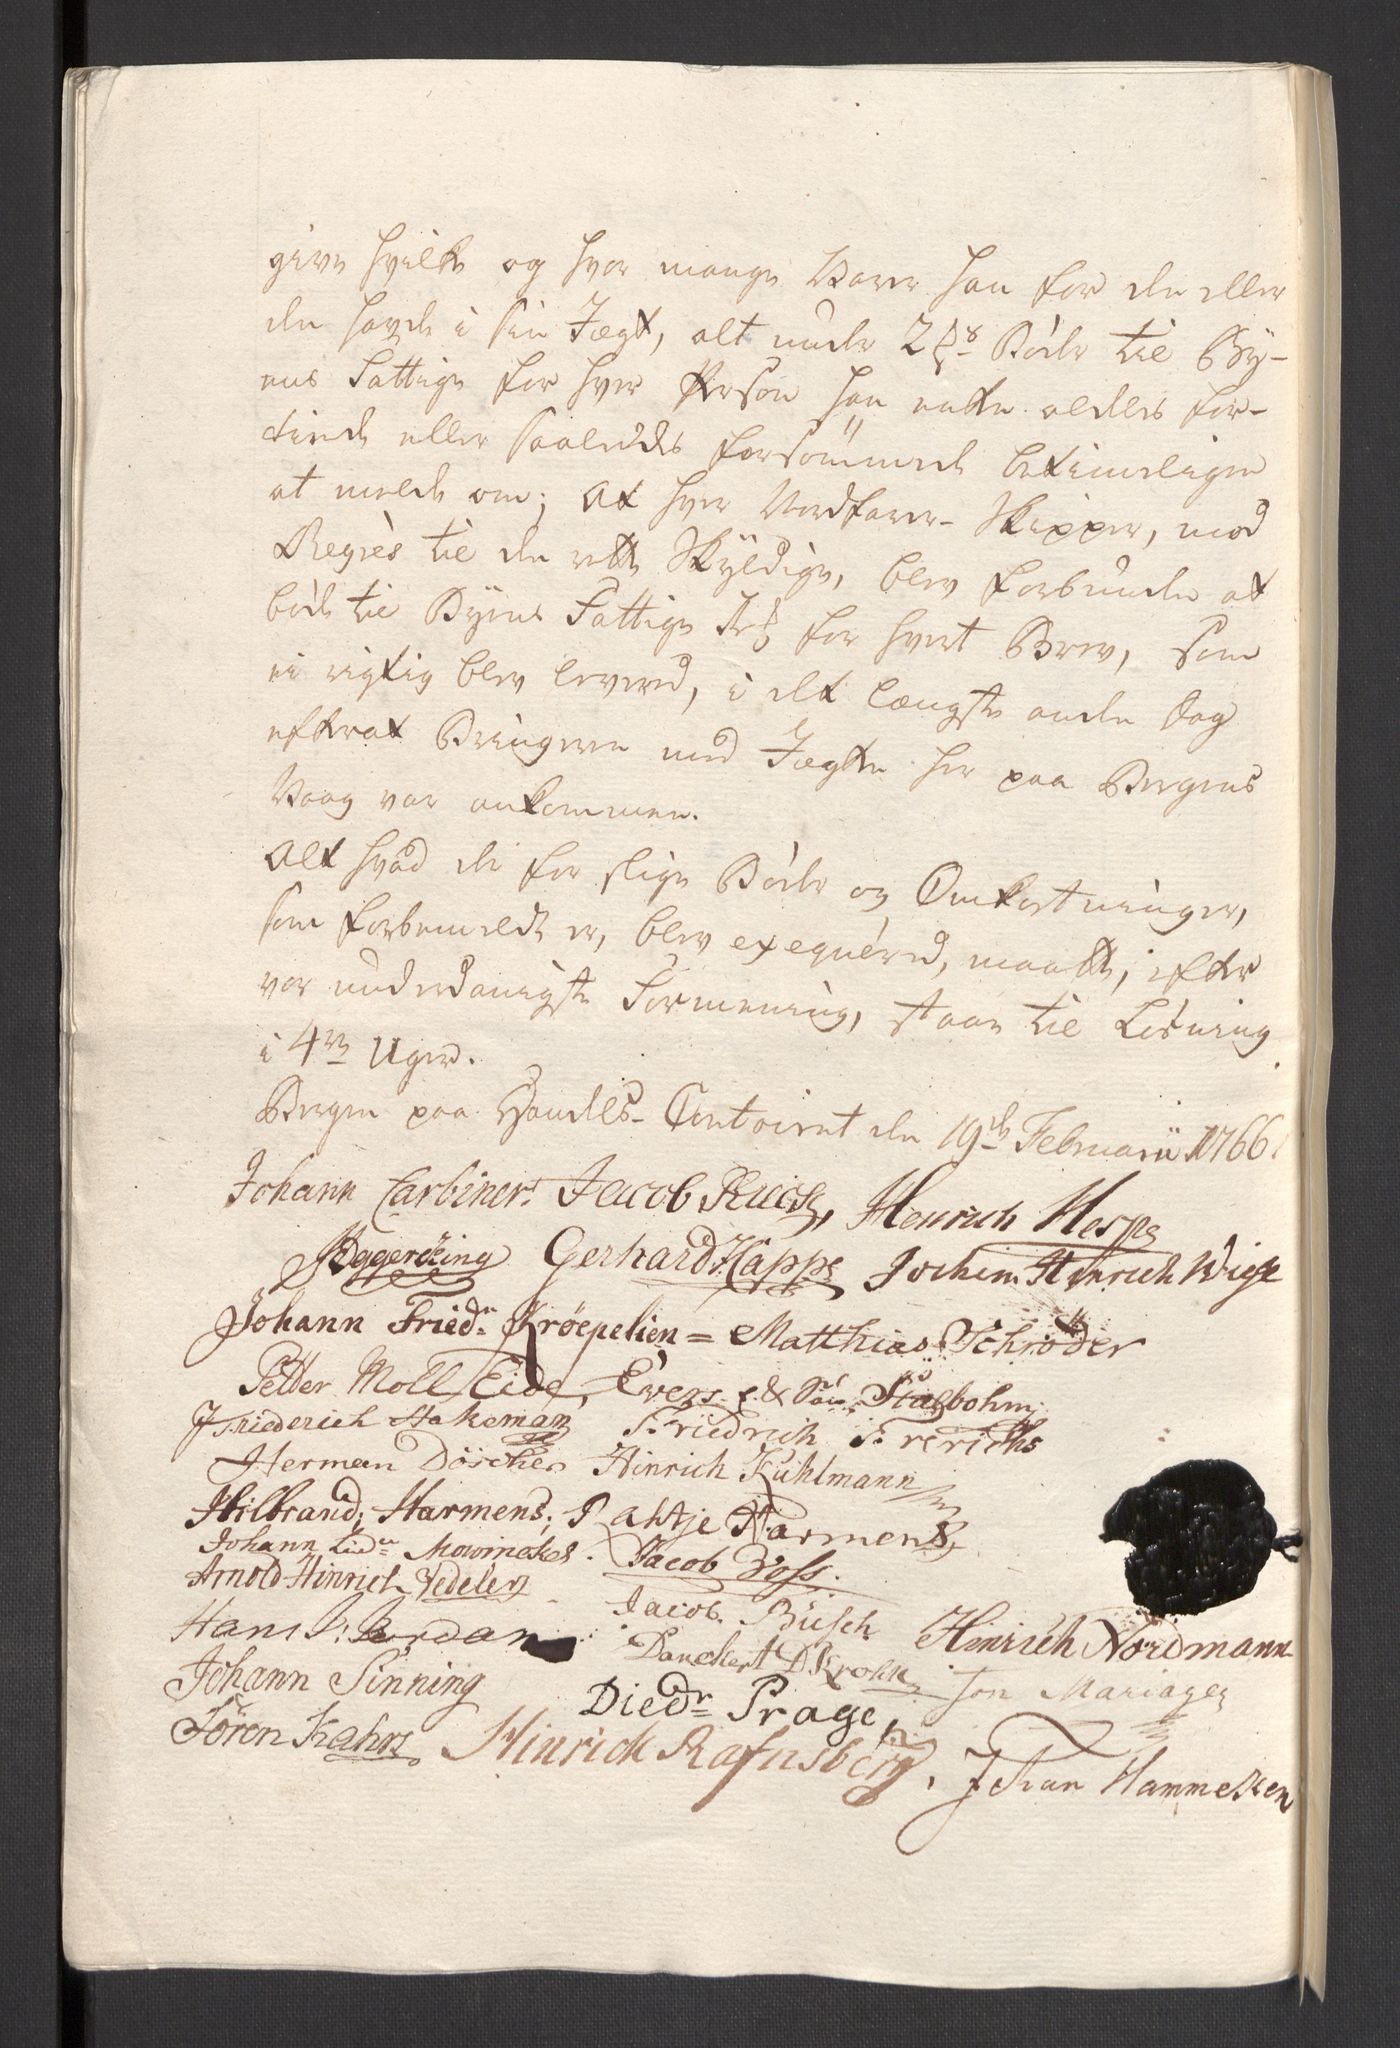 give hvilke og hvor mange Varer han for den eller
den havde i sin Jægt, alt under 2 Rdr Böder til By-
ens Fattige for hver Person han enten aldeles for-
tiede eller saaledes forsömmede betimeligen
at melde om; At hver Nordfarer-Skipper, mod
Regrès til den rette Skyldige, blev forbunden at
böde til Byens Fattige for hvert Brev, som
ei rigtig blev leveret, i det længste anden Dag
efterat Bringeren med Jægten her paa Bergens
Vaag var ankommen.
Alt hvad der for slige Böder og Omkostninger,
som forbemeldt er, blev exequéred, maatte, efter
vor underdanigste Formening, staae til Lösning
i 4re Uger.
Bergen paa Handels-Contoiret den 19de Februarii 1766.
Johann Carbiner. Jacob Heinrich Hespe
Eggerking Gerhard Happe Jochim Hinrich Wiese
Johann Friedr. Kröepelien = Matthias Schröder
Petter Moll Eide, Evers & Sön Stüebohm
J Friederich Hakeman Friedrich Frerichs
Herman Döscher Hinrich Kuhlmann
Hilbrand Harmens, Rahtje Harmens
Johann Lüdr Mowinckel. Jacob Voss.
Arnold Hinrich Vedeler
Jacob. Büsch Hinrich Nordmann
Hans J: Jordan Danckert D Krohn
Johann Sinning Diedr Prage Jon Mariager
Sören Kahrs Hinrich Rafnsberg, Johan Hammeken